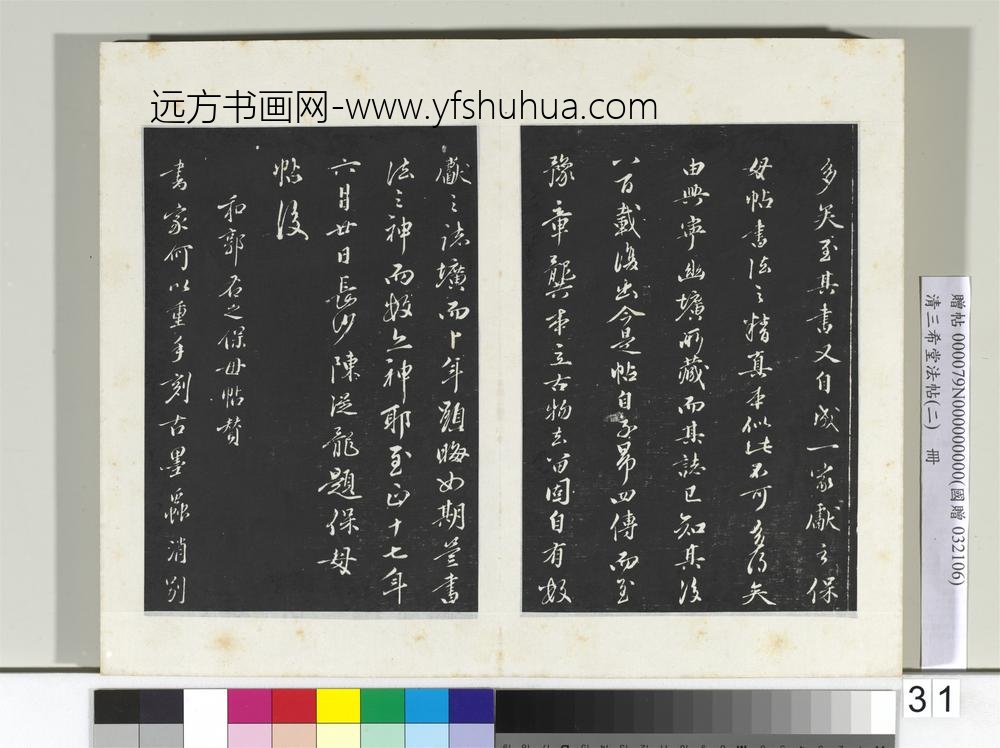 远方书画网-www.yfshuhua.com
多矣至其書又自成一家獻之保
母帖書法之精真本似此不可多得矣
由興寧幽壙所藏而其誌已知其後
八百載復出今是帖自子昂四傳而至
豫章龔本立古物去留固自有數
獻之誌壙而卜年顯晦如期豈書
法之神而數亦神耶至正十七年
六月廿日長沙陳從龍題保母
帖後
和郭右之保母帖贊
書家何以重手刻古墨縣消別
贈帖 000079N000000000(國贈 032106)
清三希堂法帖(二) 冊
31